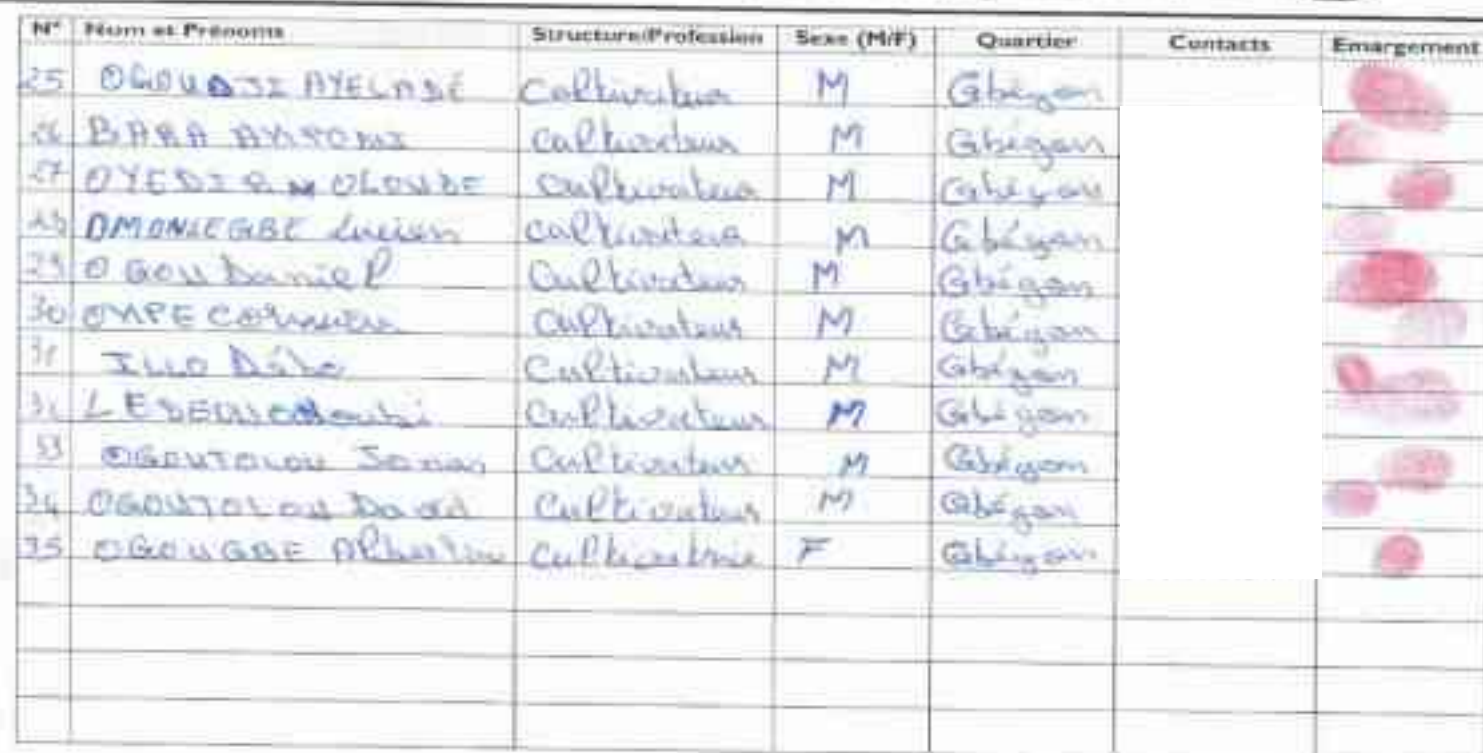 N° Nom et Prénoms Structure/Profession Sexe (M/F) Quartier Contacts Emargement
25 OGOUDJI AYELABÉ Cultivateur M Gbégon
26 BARA Cultivateur M Gbégon
27 OYEDIRAN OLOUDE Cultivateur M Gbégon
28 OMONLEGBE Lucien Cultivateur M Gbégon
29 OGOU Daniel Cultivateur M Gbégon
30 Cultivateur M Gbégon
31 ILLO Cultivateur M Gbégon
32 Cultivateur M Gbégon
33 OGOUTOLOU Cultivateur M Gbégon
34 OGOUTOLOU David Cultivateur M Gbégon
35 OGOUGBE Albertine Cultivatrice F Gbégon